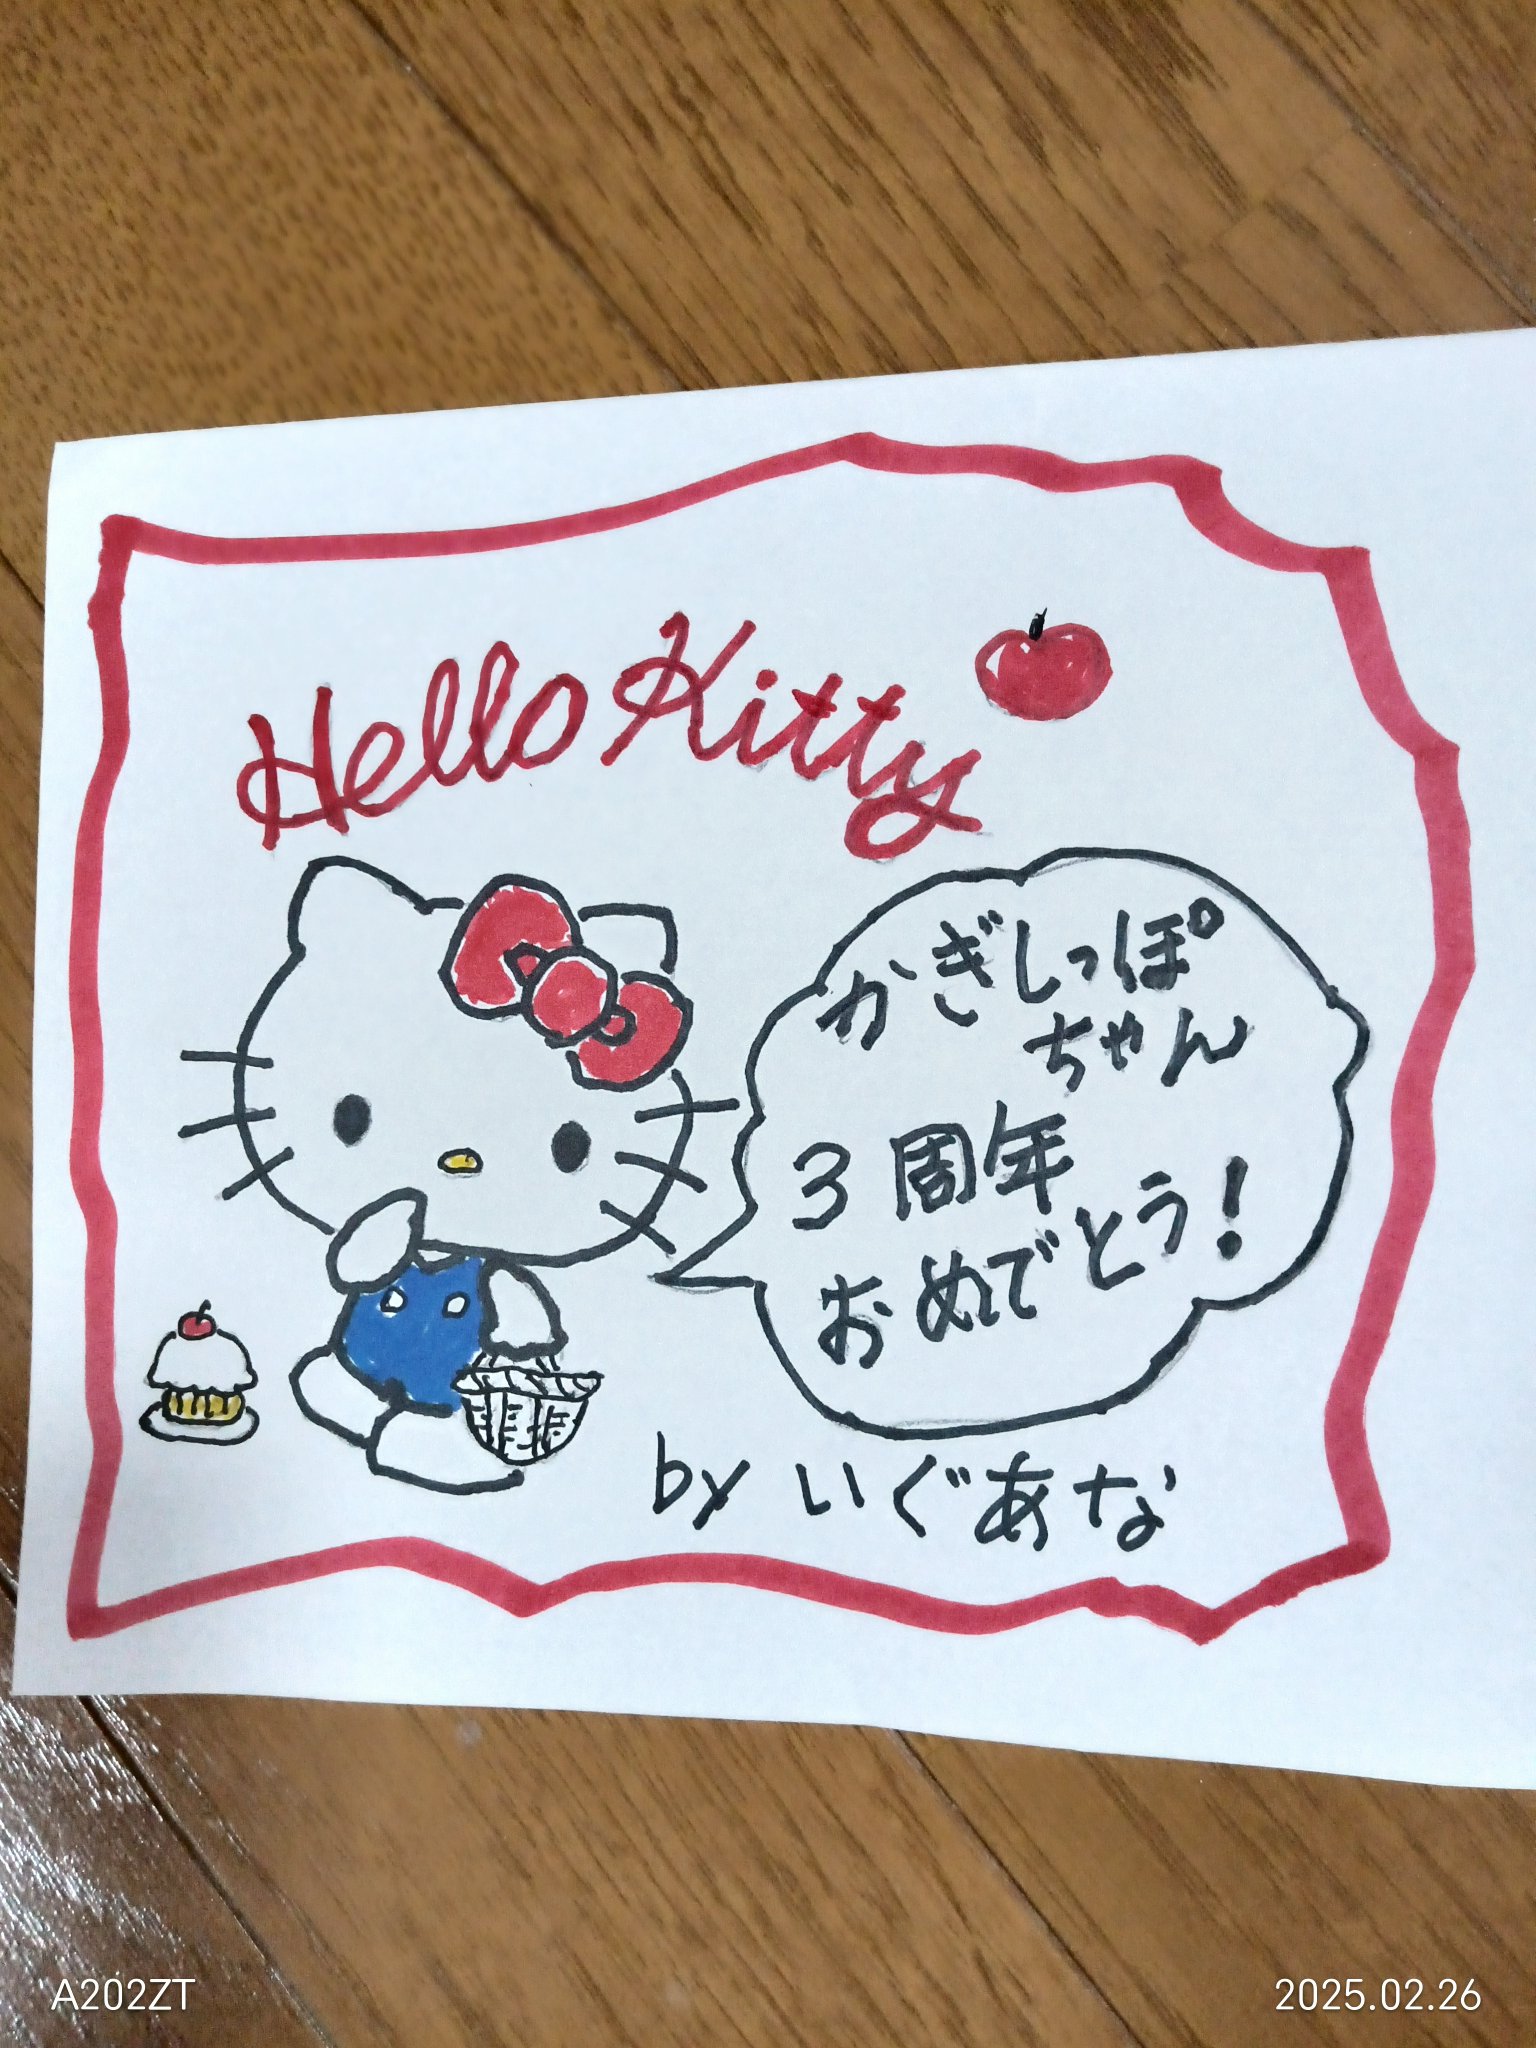 Hello Kitty
かぎしっぽ
ちゃん
3周年
おめでとう!
by いぐあな
A202ZT
2025.02.26